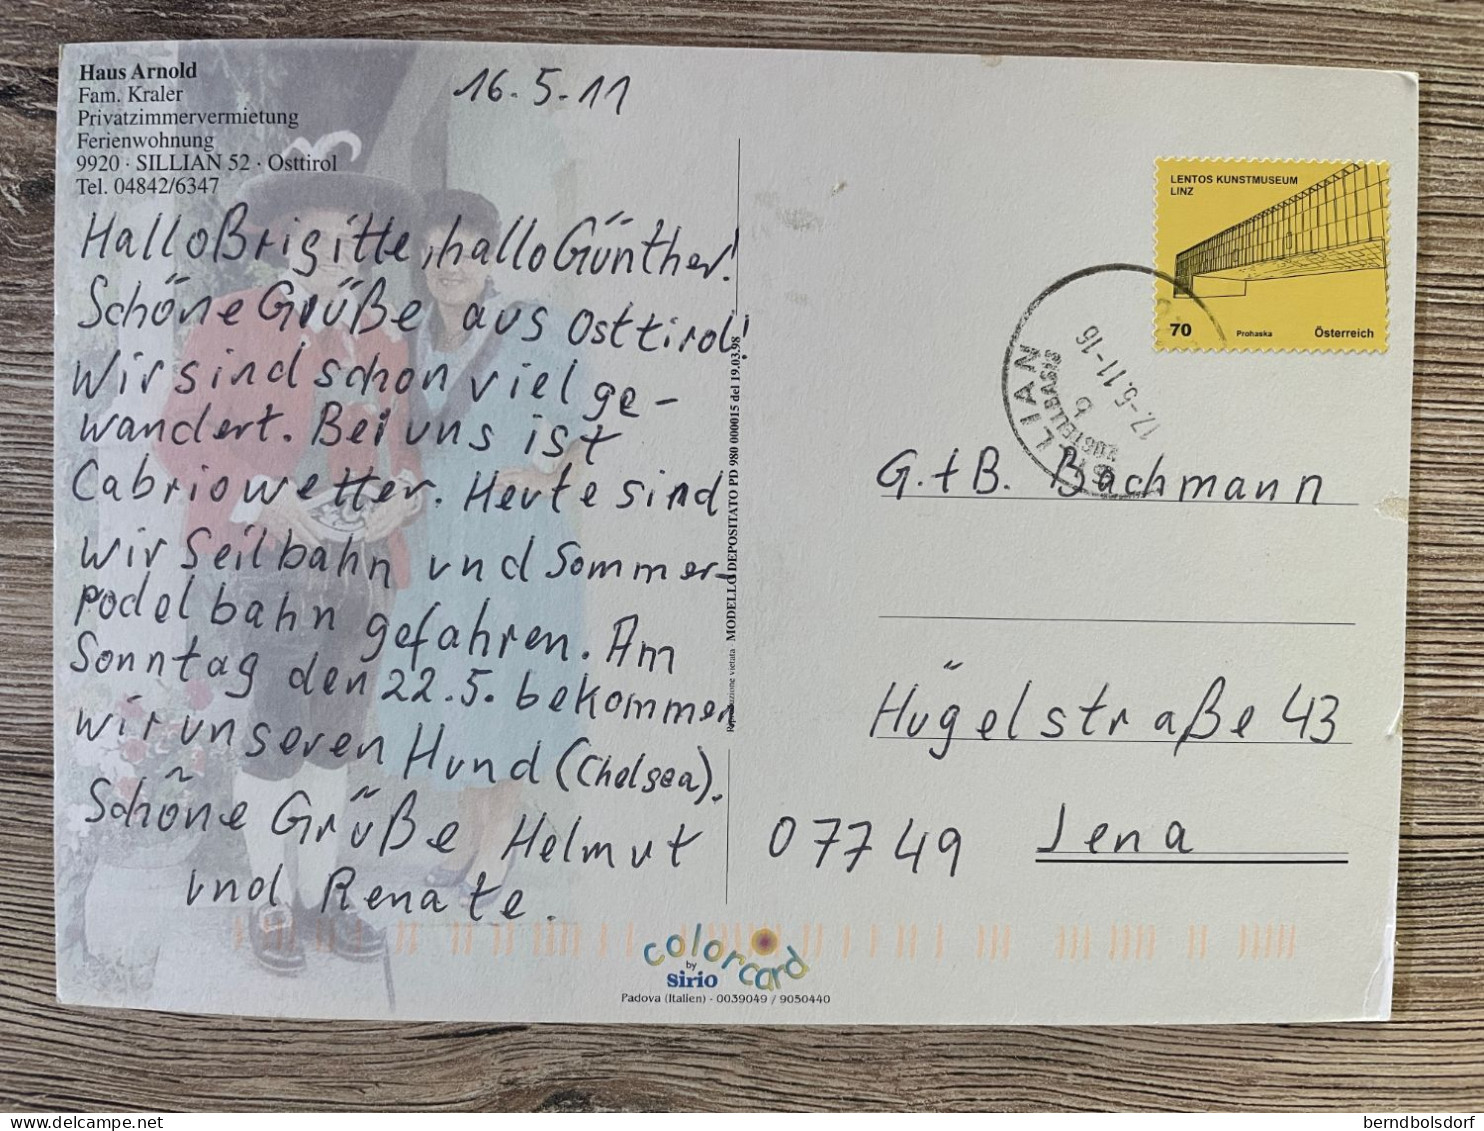 Haus Arnold
Fam. Kraler
Privatzimmervermietung
Ferienwohnung
9920 · SILLIAN 52 · Osttirol
Tel. 04842/6347
16.5.11
Hallo Brigitte, hallo Günther!
Schöne Grüße aus Osttirol!
Wir sind schon viel ge-
wandert. Bei uns ist
Cabriowetter. Heute sind
wir Seilbahn und Sommer-
rodelbahn gefahren. Am
Sonntag den 22.5. bekommen
wir unseren Hund (Chelsea).
Schöne Grüße Helmut
und Renate.
Riproduzione vietata - MODELLO DEPOSITATO PD 980 000015 del 19.03.98
LENTOS KUNSTMUSEUM
LINZ
70 Prohaska Österreich
SILLIAN
ZUSTELLBASIS
b
17.-5.11-16
G. + B. Bachmann
Hügelstraße 43
07749 Jena
colorcard
by
sirio
Padova (Italien) - 0039049 / 9050440
berndbolsdorf